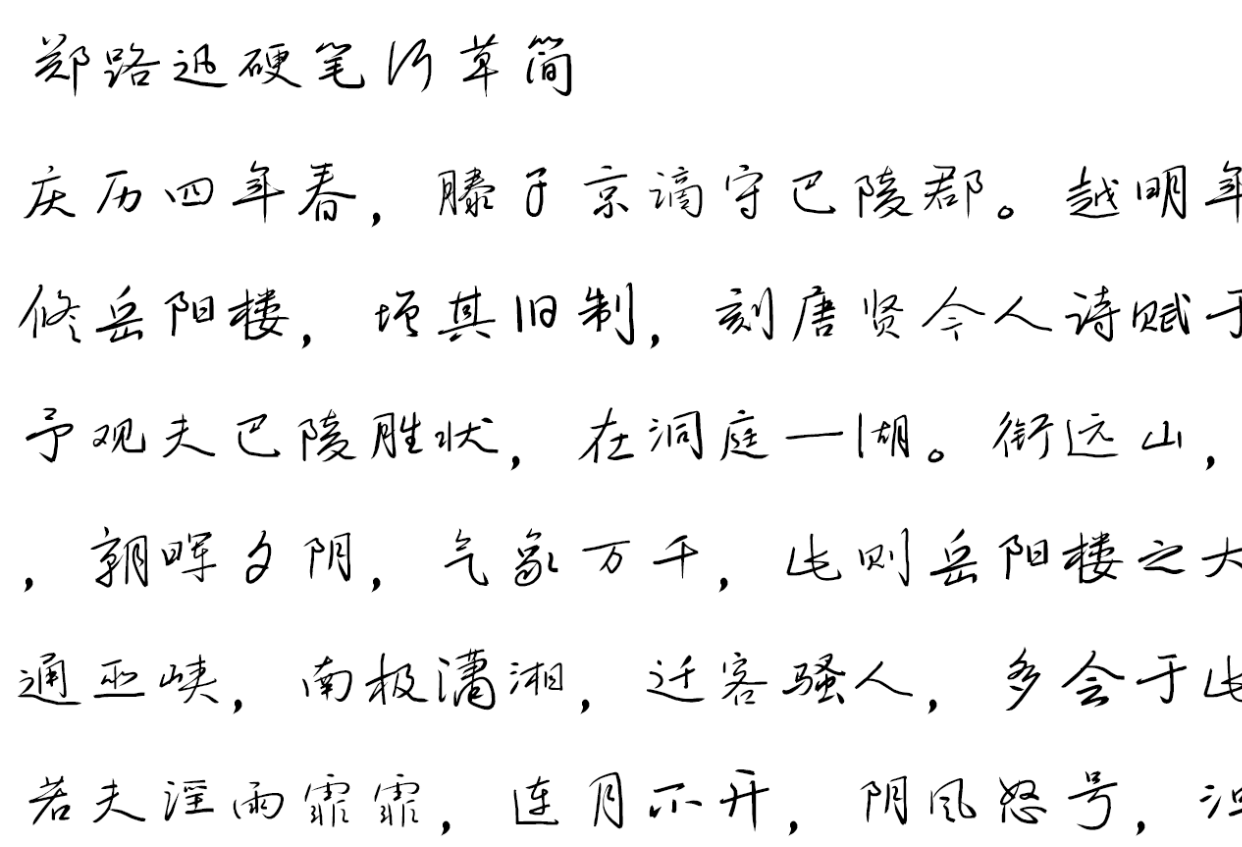 郑路迅硬笔行草简
庆历四年春，滕子京谪守巴陵郡。越明年
修岳阳楼，增其旧制，刻唐贤今人诗赋于
予观夫巴陵胜状，在洞庭一湖。衔远山，
，朝晖夕阴，气象万千，此则岳阳楼之大
通巫峡，南极潇湘，迁客骚人，多会于此
若夫淫雨霏霏，连月不开，阴风怒号，